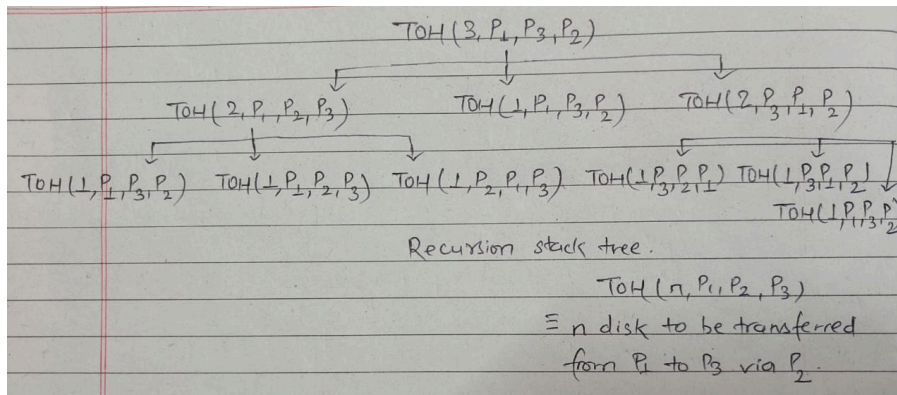 TOH(3, P1, P3, P2)
TOH(2, P1, P2, P3) TOH(1, P1, P3, P2) TOH(2, P3, P1, P2)
TOH(1, P1, P3, P2) TOH(1, P1, P2, P3) TOH(1, P2, P1, P3) TOH(1, P3, P2, P1) TOH(1, P3, P1, P2)
TOH(1, P1, P3, P2)
Recursion stack tree.
TOH(n, P1, P2, P3)
≡ n disk to be transferred
from P1 to P3 via P2.